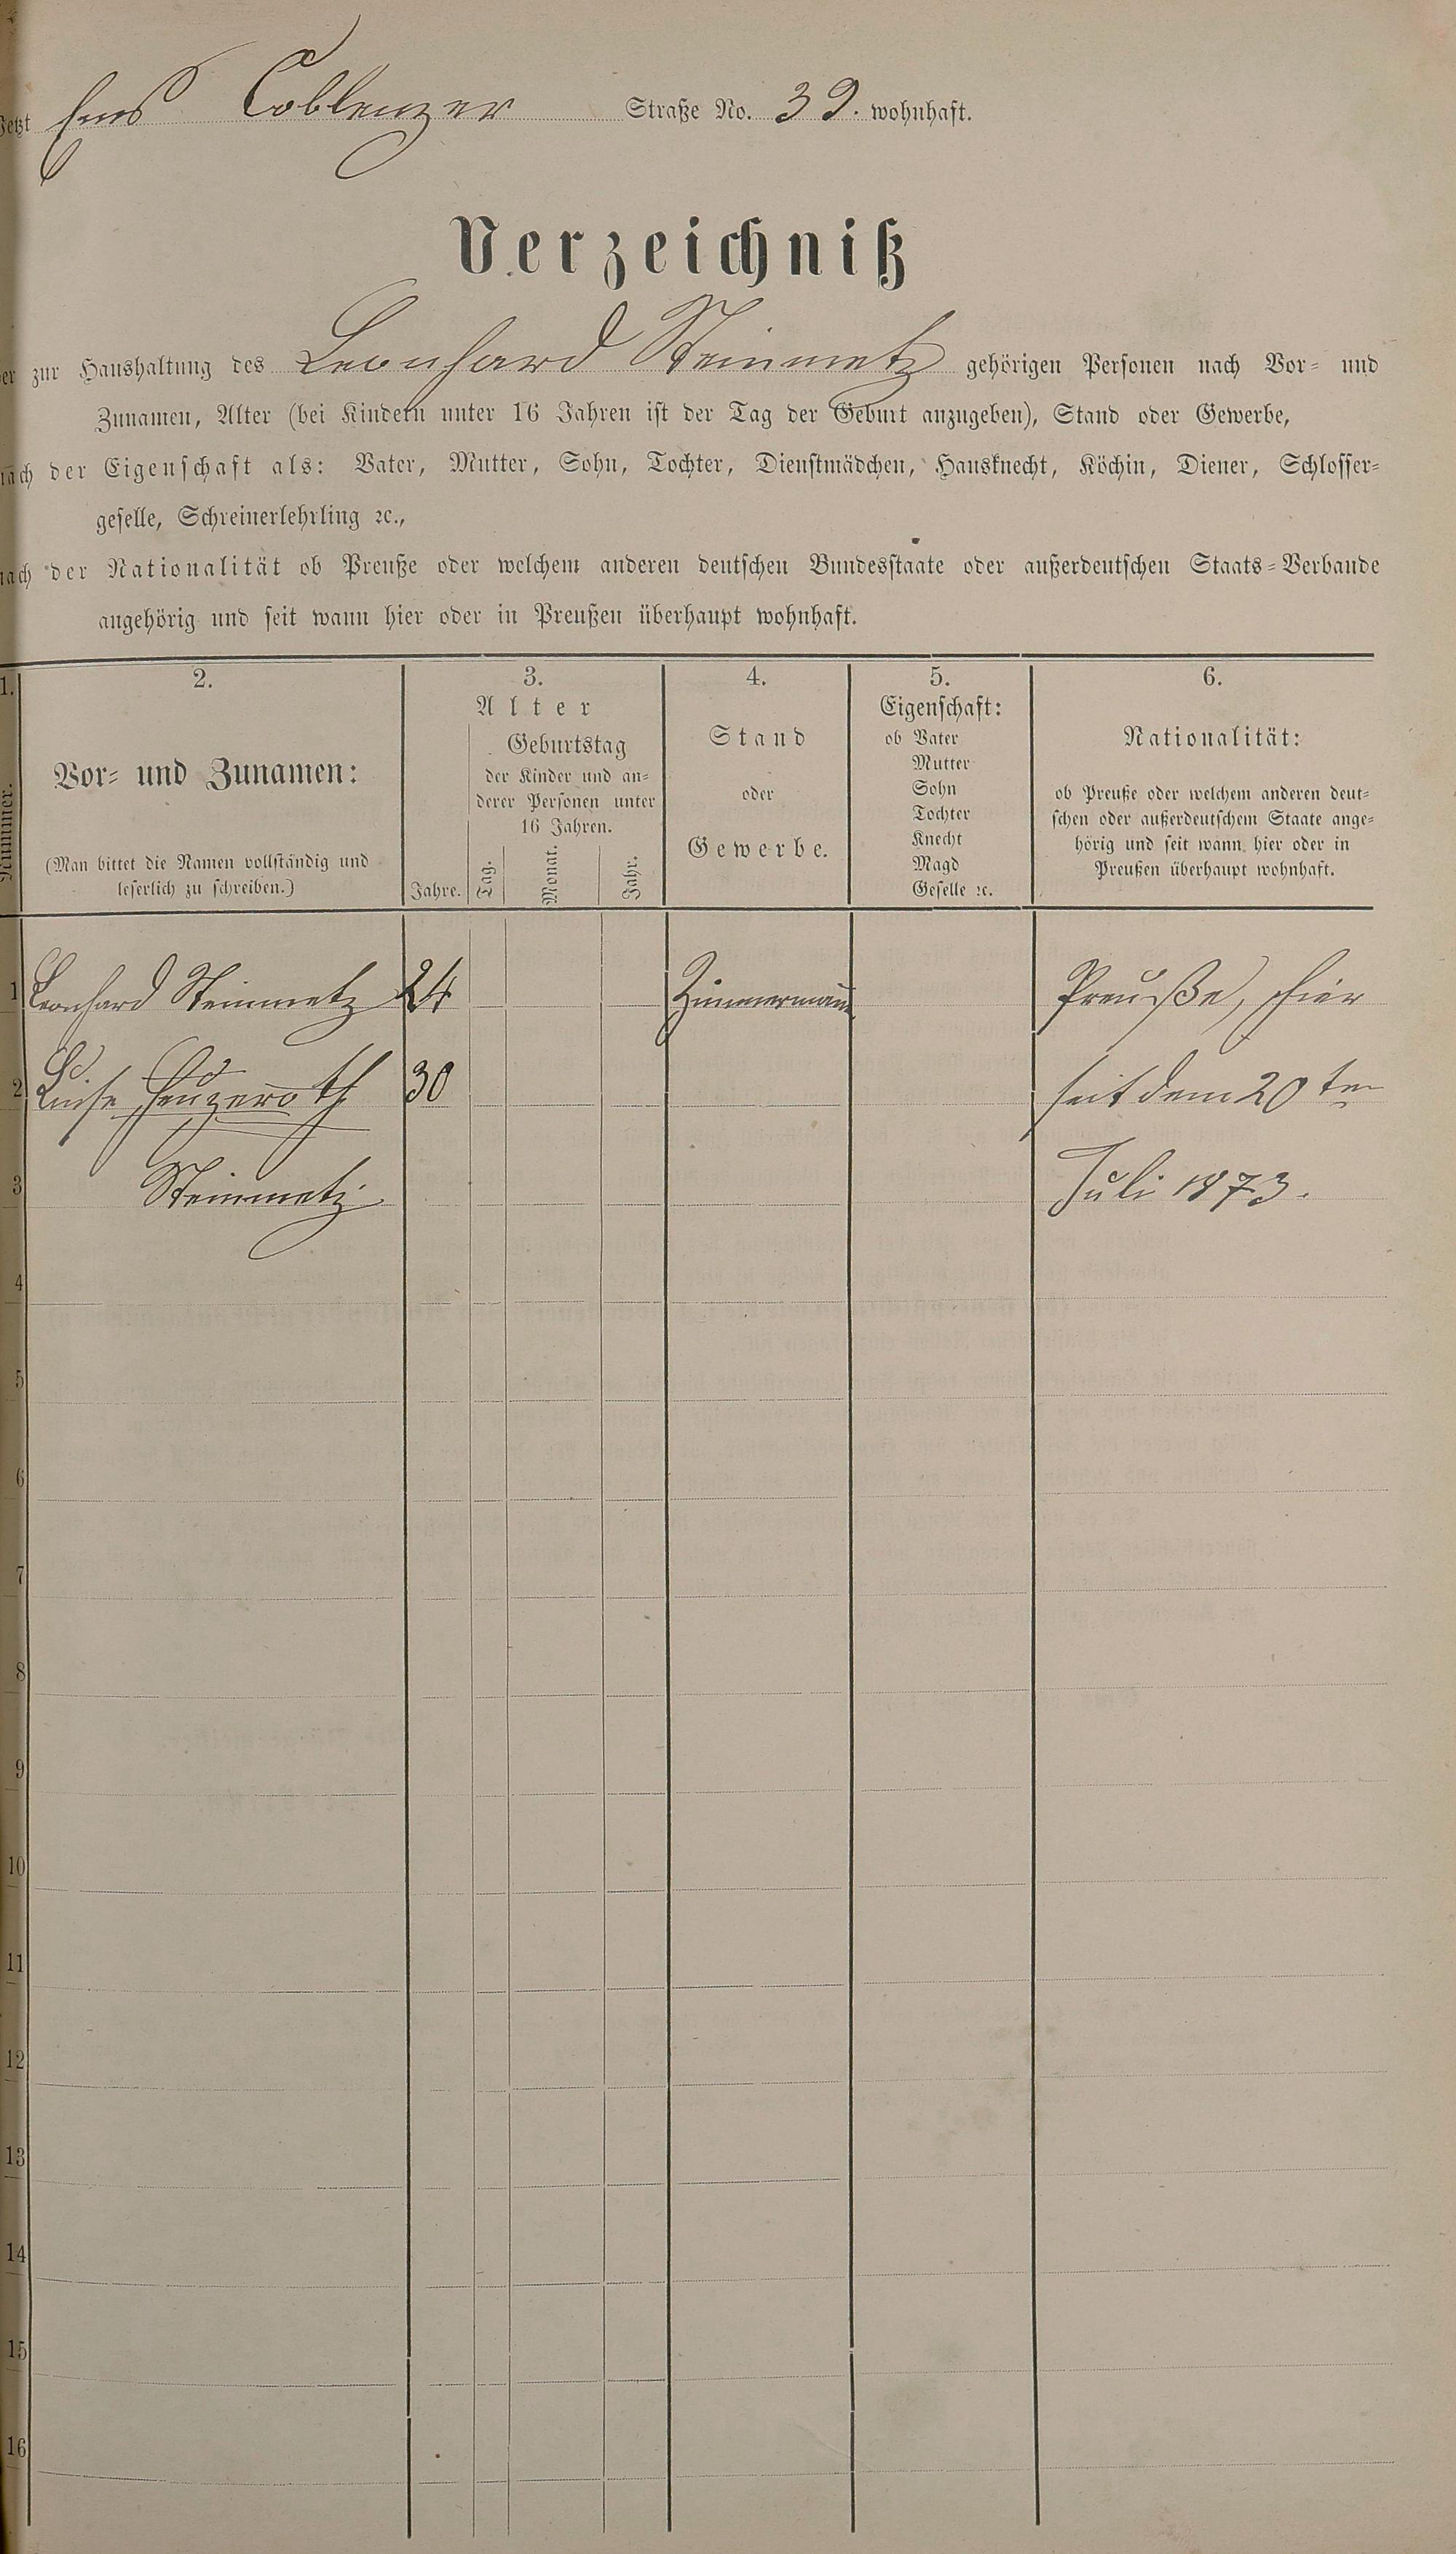 Jetzt Ems Coblenzer Straße No. 39. wohnhaft.
Verzeichniß
der zur Haushaltung des Leonhard Steinmetz gehörigen Personen nach Vor- und
Zunamen, Alter (bei Kindern unter 16 Jahren ist der Tag der Geburt anzugeben), Stand oder Gewerbe,
nach der Eigenschaft als: Vater, Mutter, Sohn, Tochter, Dienstmädchen, Hausknecht, Köchin, Diener, Schlosser-
geselle, Schreinerlehrling ꝛc.,
nach der Nationalität ob Preuße oder welchem anderen deutschen Bundesstaate oder außerdeutschen Staats-Verbande
angehörig und seit wann hier oder in Preußen überhaupt wohnhaft.
1.
Nummer.
2.
Vor- und Zunamen:
(Man bittet die Namen vollständig und
leserlich zu schreiben.)
3.
Alter
Jahre.
Geburtstag
der Kinder und an-
derer Personen unter
16 Jahren.
Tag.
Monat.
Jahr.
4.
Stand
oder
Gewerbe.
5.
Eigenschaft:
ob Vater
Mutter
Sohn
Tochter
Knecht
Magd
Geselle ꝛc.
6.
Nationalität:
ob Preuße oder welchem anderen deut-
schen oder außerdeutschem Staate ange-
hörig und seit wann hier oder in
Preußen überhaupt wohnhaft.
1 Leonhard Steinmetz 24 Zimmermann Preuße, hier
2 Luise Heuzeroth 30 seit dem 20ten
3 Steinmetz Juli 1873.
4
5
6
7
8
9
10
11
12
13
14
15
16